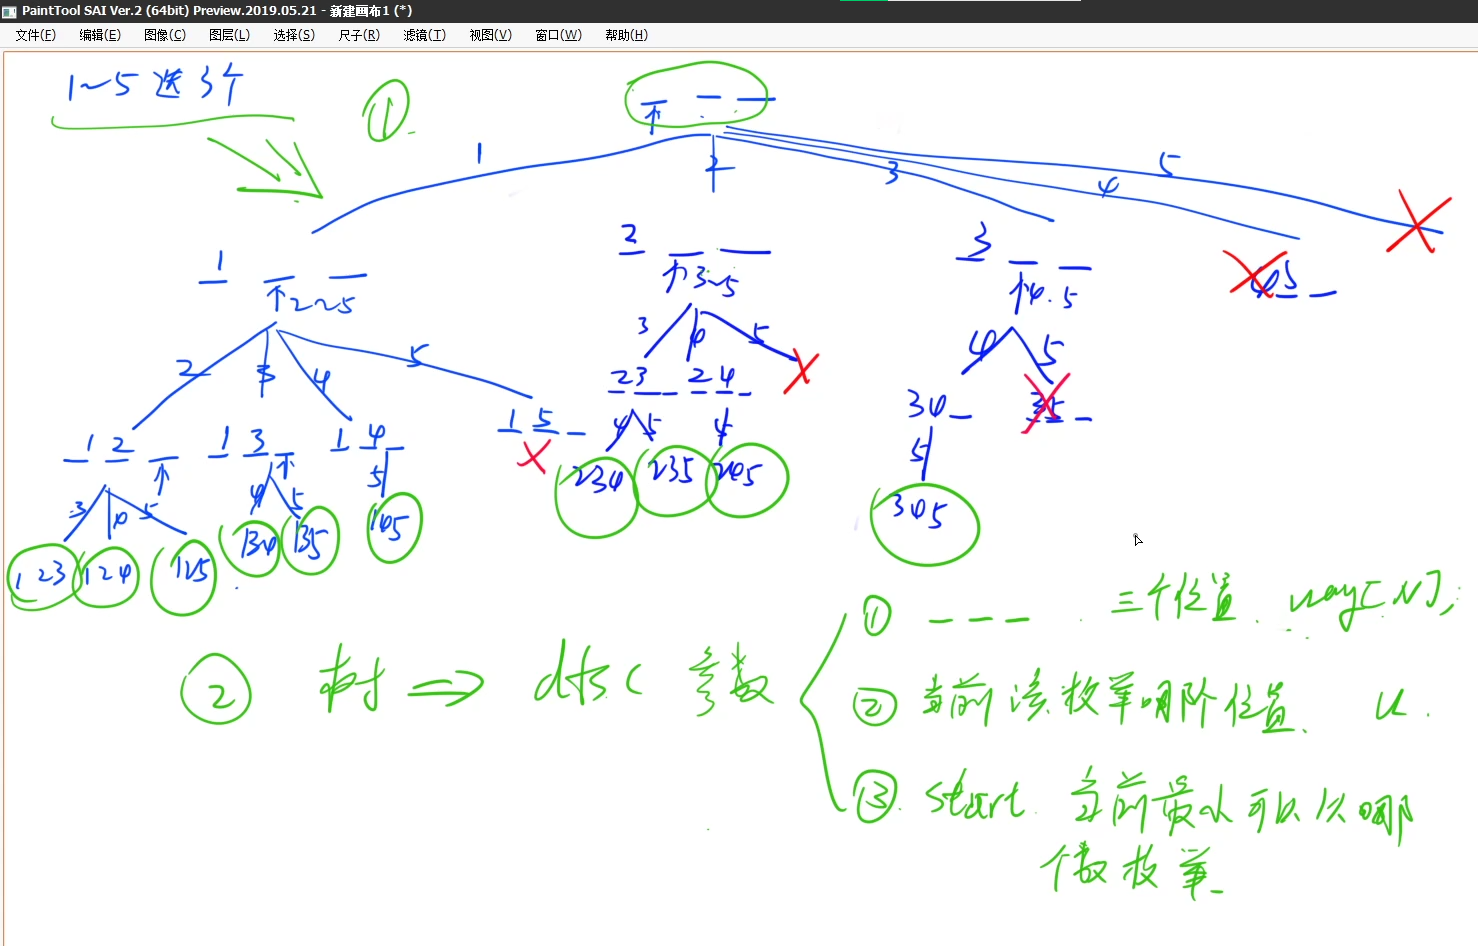 PaintTool SAI Ver.2 (64bit) Preview.2019.05.21 - 新建画布1 (*)
文件(F) 编辑(E) 图像(C) 图层(L) 选择(S) 尺子(R) 滤镜(T) 视图(V) 窗口(W) 帮助(H)
1~5 选 3个
①
1 2 3 4 5
1 ↑2~5
2 ↑3~5
3 ↑4.5
45
2 3 4 5
3 4 5
4 5
12 13 14 15
23 24
34 35
3 4 5 4 5 5
4 5 5
5
123 124 125 134 135 145
234 235 245
345
② 树 => dfs( 参数
① _ _ _ . 三个位置. way[N];
② 当前该枚举哪个位置. u.
③. start. 当前最小可以从哪
个数枚举